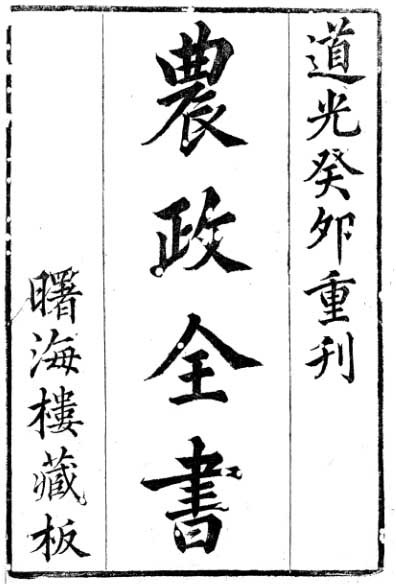 道光癸卯重刋
農政全書
曙海樓藏板